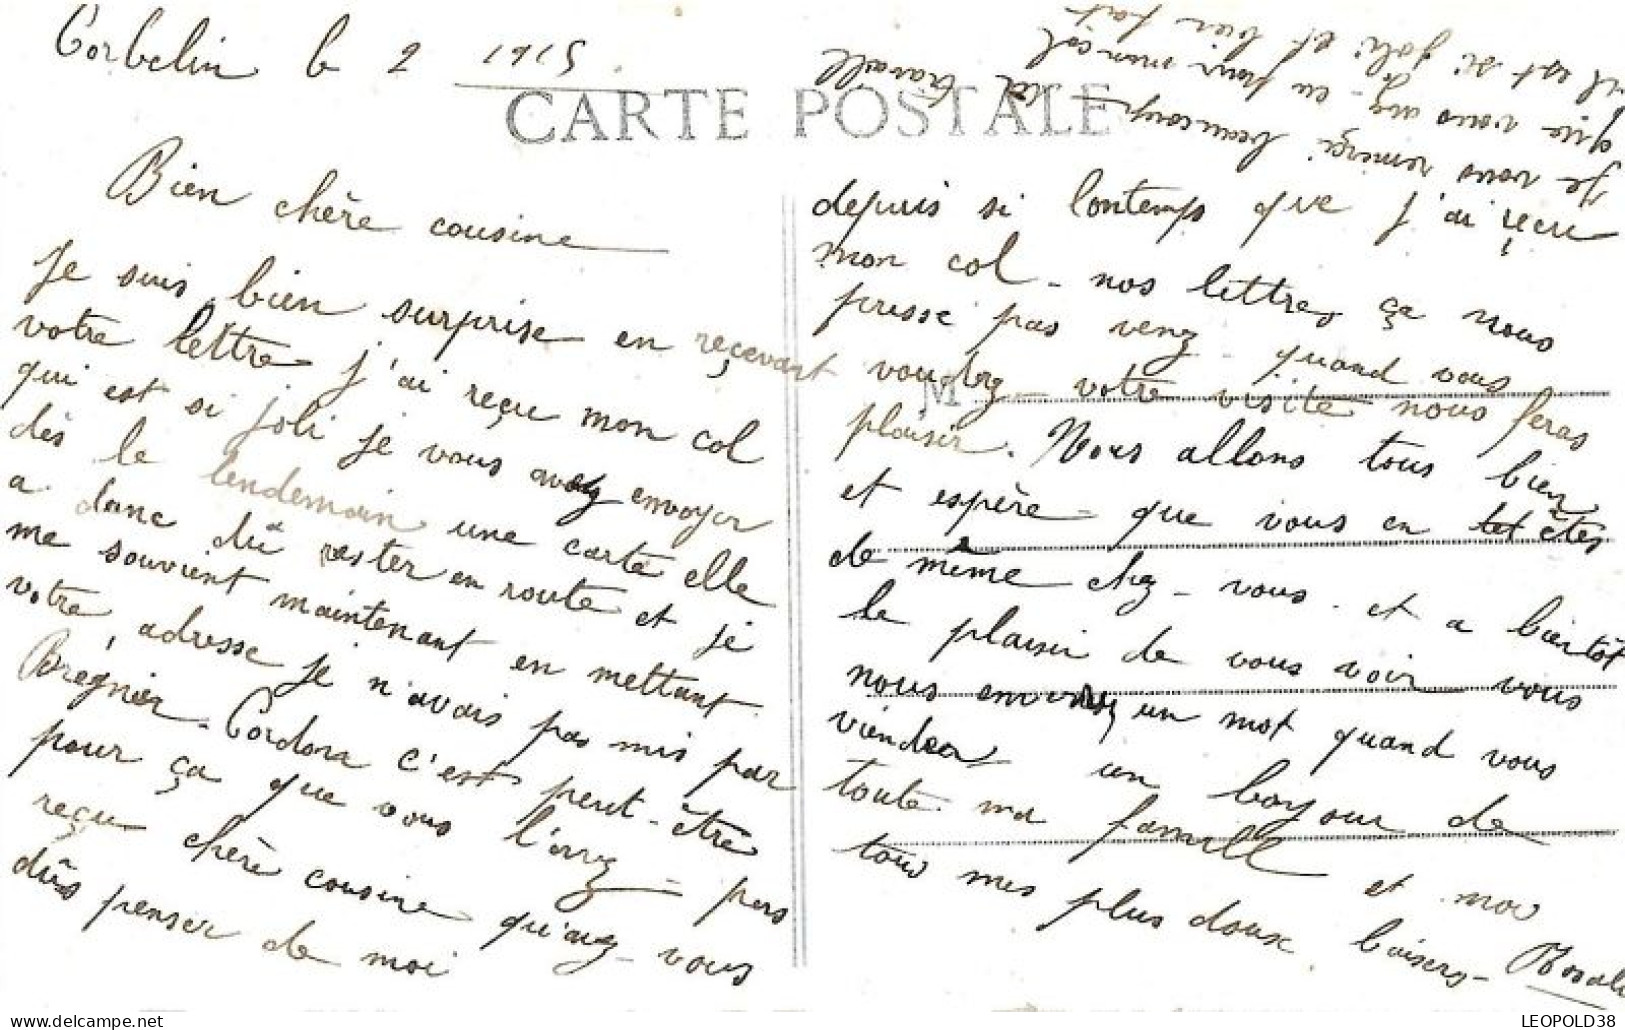 Corbelin le 2 1915
CARTE POSTALE
Bien chère cousine
Je suis bien surprise en reçevant
votre lettre j'ai reçu mon col
qui est si joli je vous avez envoyer
dès le lendemain une carte elle
a donc dû rester en route et je
me souvient maintenant en mettant
votre adresse je n'avais pas mis par
Brégnier-Cordon c'est peut-être
pour ça que vous l'avez pas
reçu chère cousine qu'avez-vous
dûs penser de moi
depuis si lontemps que j'ai reçu
mon col - nos lettres ça nous
presse pas venez quand vous
voulez - votre visite nous feras
plaisir. Nous allons tous bien
et espère que vous en êtes
de même chez-vous. et a bientôt
le plaisir de vous voir vous
nous enverrez un mot quand vous
viendrez un bonjour de
toute ma famille et moi
tous mes plus doux baisers - Rosalie
Je vous remerçi beaucoup le travail
que vous avez eu pour mon col
il est si joli et bien fait
M
LEOPOLD38